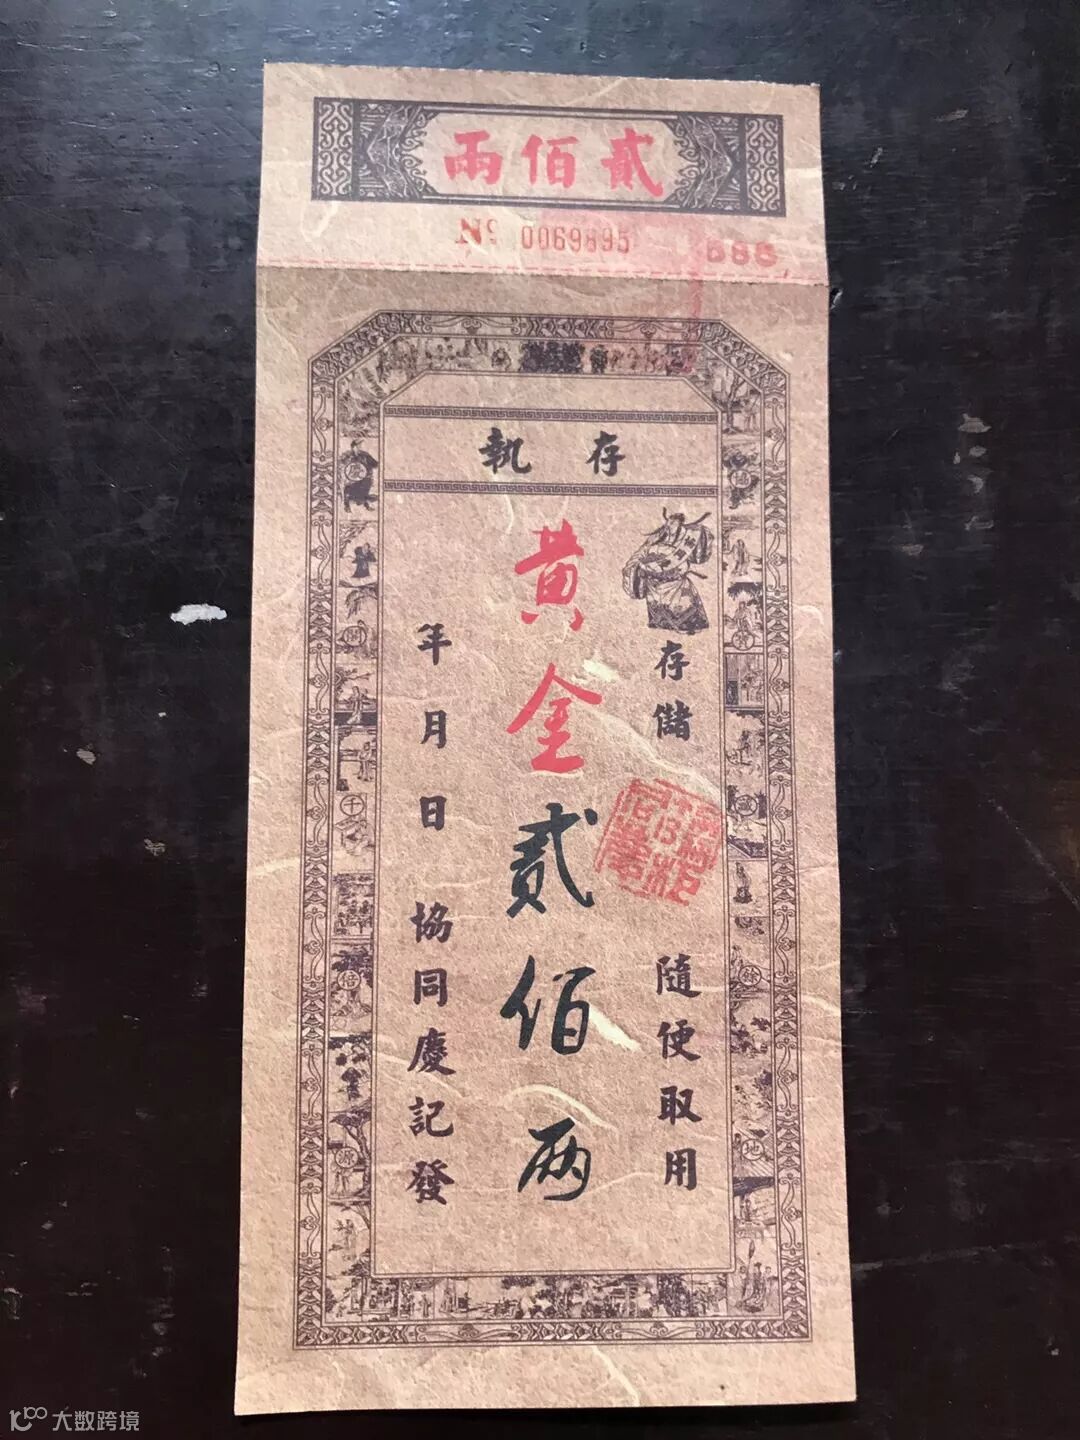 貳佰兩
№ 0069895
執存
存儲
隨便取用
黄金貳佰两
年月日
協同慶記發
大数跨境